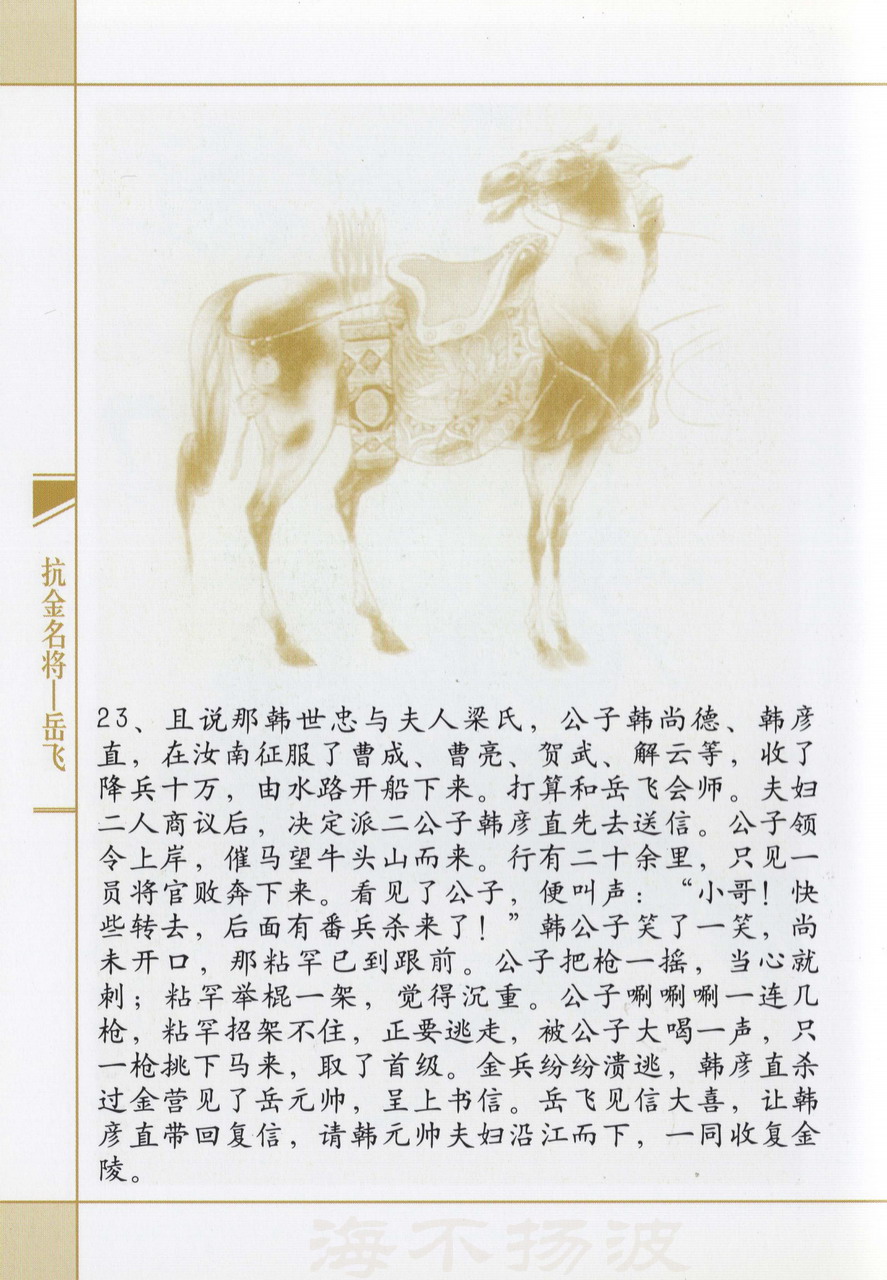 抗金名将—岳飞
23、且说那韩世忠与夫人梁氏，公子韩尚德、韩彦
直，在汝南征服了曹成、曹亮、贺武、解云等，收了
降兵十万，由水路开船下来。打算和岳飞会师。夫妇
二人商议后，决定派二公子韩彦直先去送信。公子领
令上岸，催马望牛头山而来。行有二十余里，只见一
员将官败奔下来。看见了公子，便叫声：“小哥！快
些转去，后面有番兵杀来了！”韩公子笑了一笑，尚
未开口，那粘罕已到跟前。公子把枪一摇，当心就
刺；粘罕举棍一架，觉得沉重。公子唰唰唰一连几
枪，粘罕招架不住，正要逃走，被公子大喝一声，只
一枪挑下马来，取了首级。金兵纷纷溃逃，韩彦直杀
过金营见了岳元帅，呈上书信。岳飞见信大喜，让韩
彦直带回复信，请韩元帅夫妇沿江而下，一同收复金
陵。
海不扬波